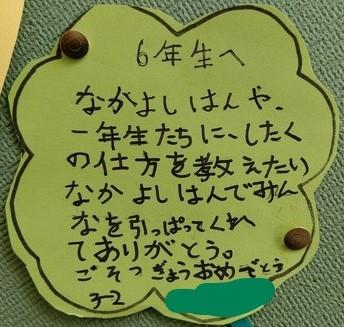 6年生へ
ながよしはんや、
一年生たちに、したく
の仕方を教えたり
なかよしはんでみん
なを引っぱってくれ
てありがとう。
ごそつぎょうおめでとう
3-2